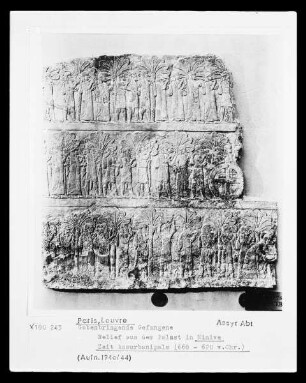 Paris, Louvre
Assyr Abt
V190 243
Gabenbringende Gefangene
Relief aus dem Palast in Ninive
Zeit Assurbanipals (668 - 626 v.Chr.)
(Aufn. 1940/44)